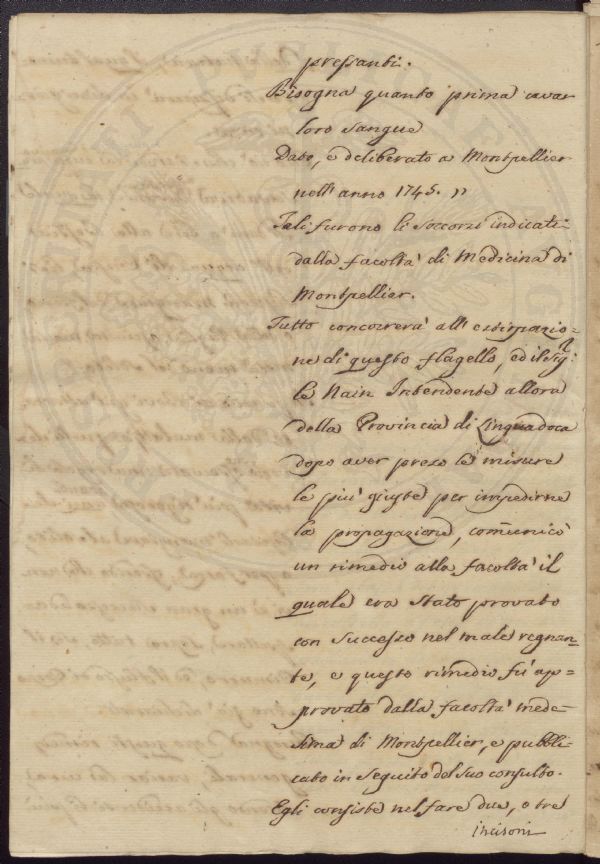 pressanti.
Bisogna quanto prima avar
loro sangue
Dato, e deliberato a Montpellier
nell'anno 1745. "
Tali furono li soccorsi indicati
dalla facoltà di Medicina di
Montpellier.
Tutto concorrerà all'estirpazio=
ne di questo flagello, ed il Sig:r
le Nain Intendente allora
della Provincia di Linguadoca
dopo aver preso le misure
le più giuste per impedirne
la propagazione, comunicò
un rimedio alla facoltà il
quale era stato provato
con successo nel male regnan=
te, e questo rimedio fù ap=
provato dalla facoltà mede=
sima di Montpellier, e pubbli=
cato in seguito del suo consulto.
Egli consiste nel fare due, o tre
incisoni